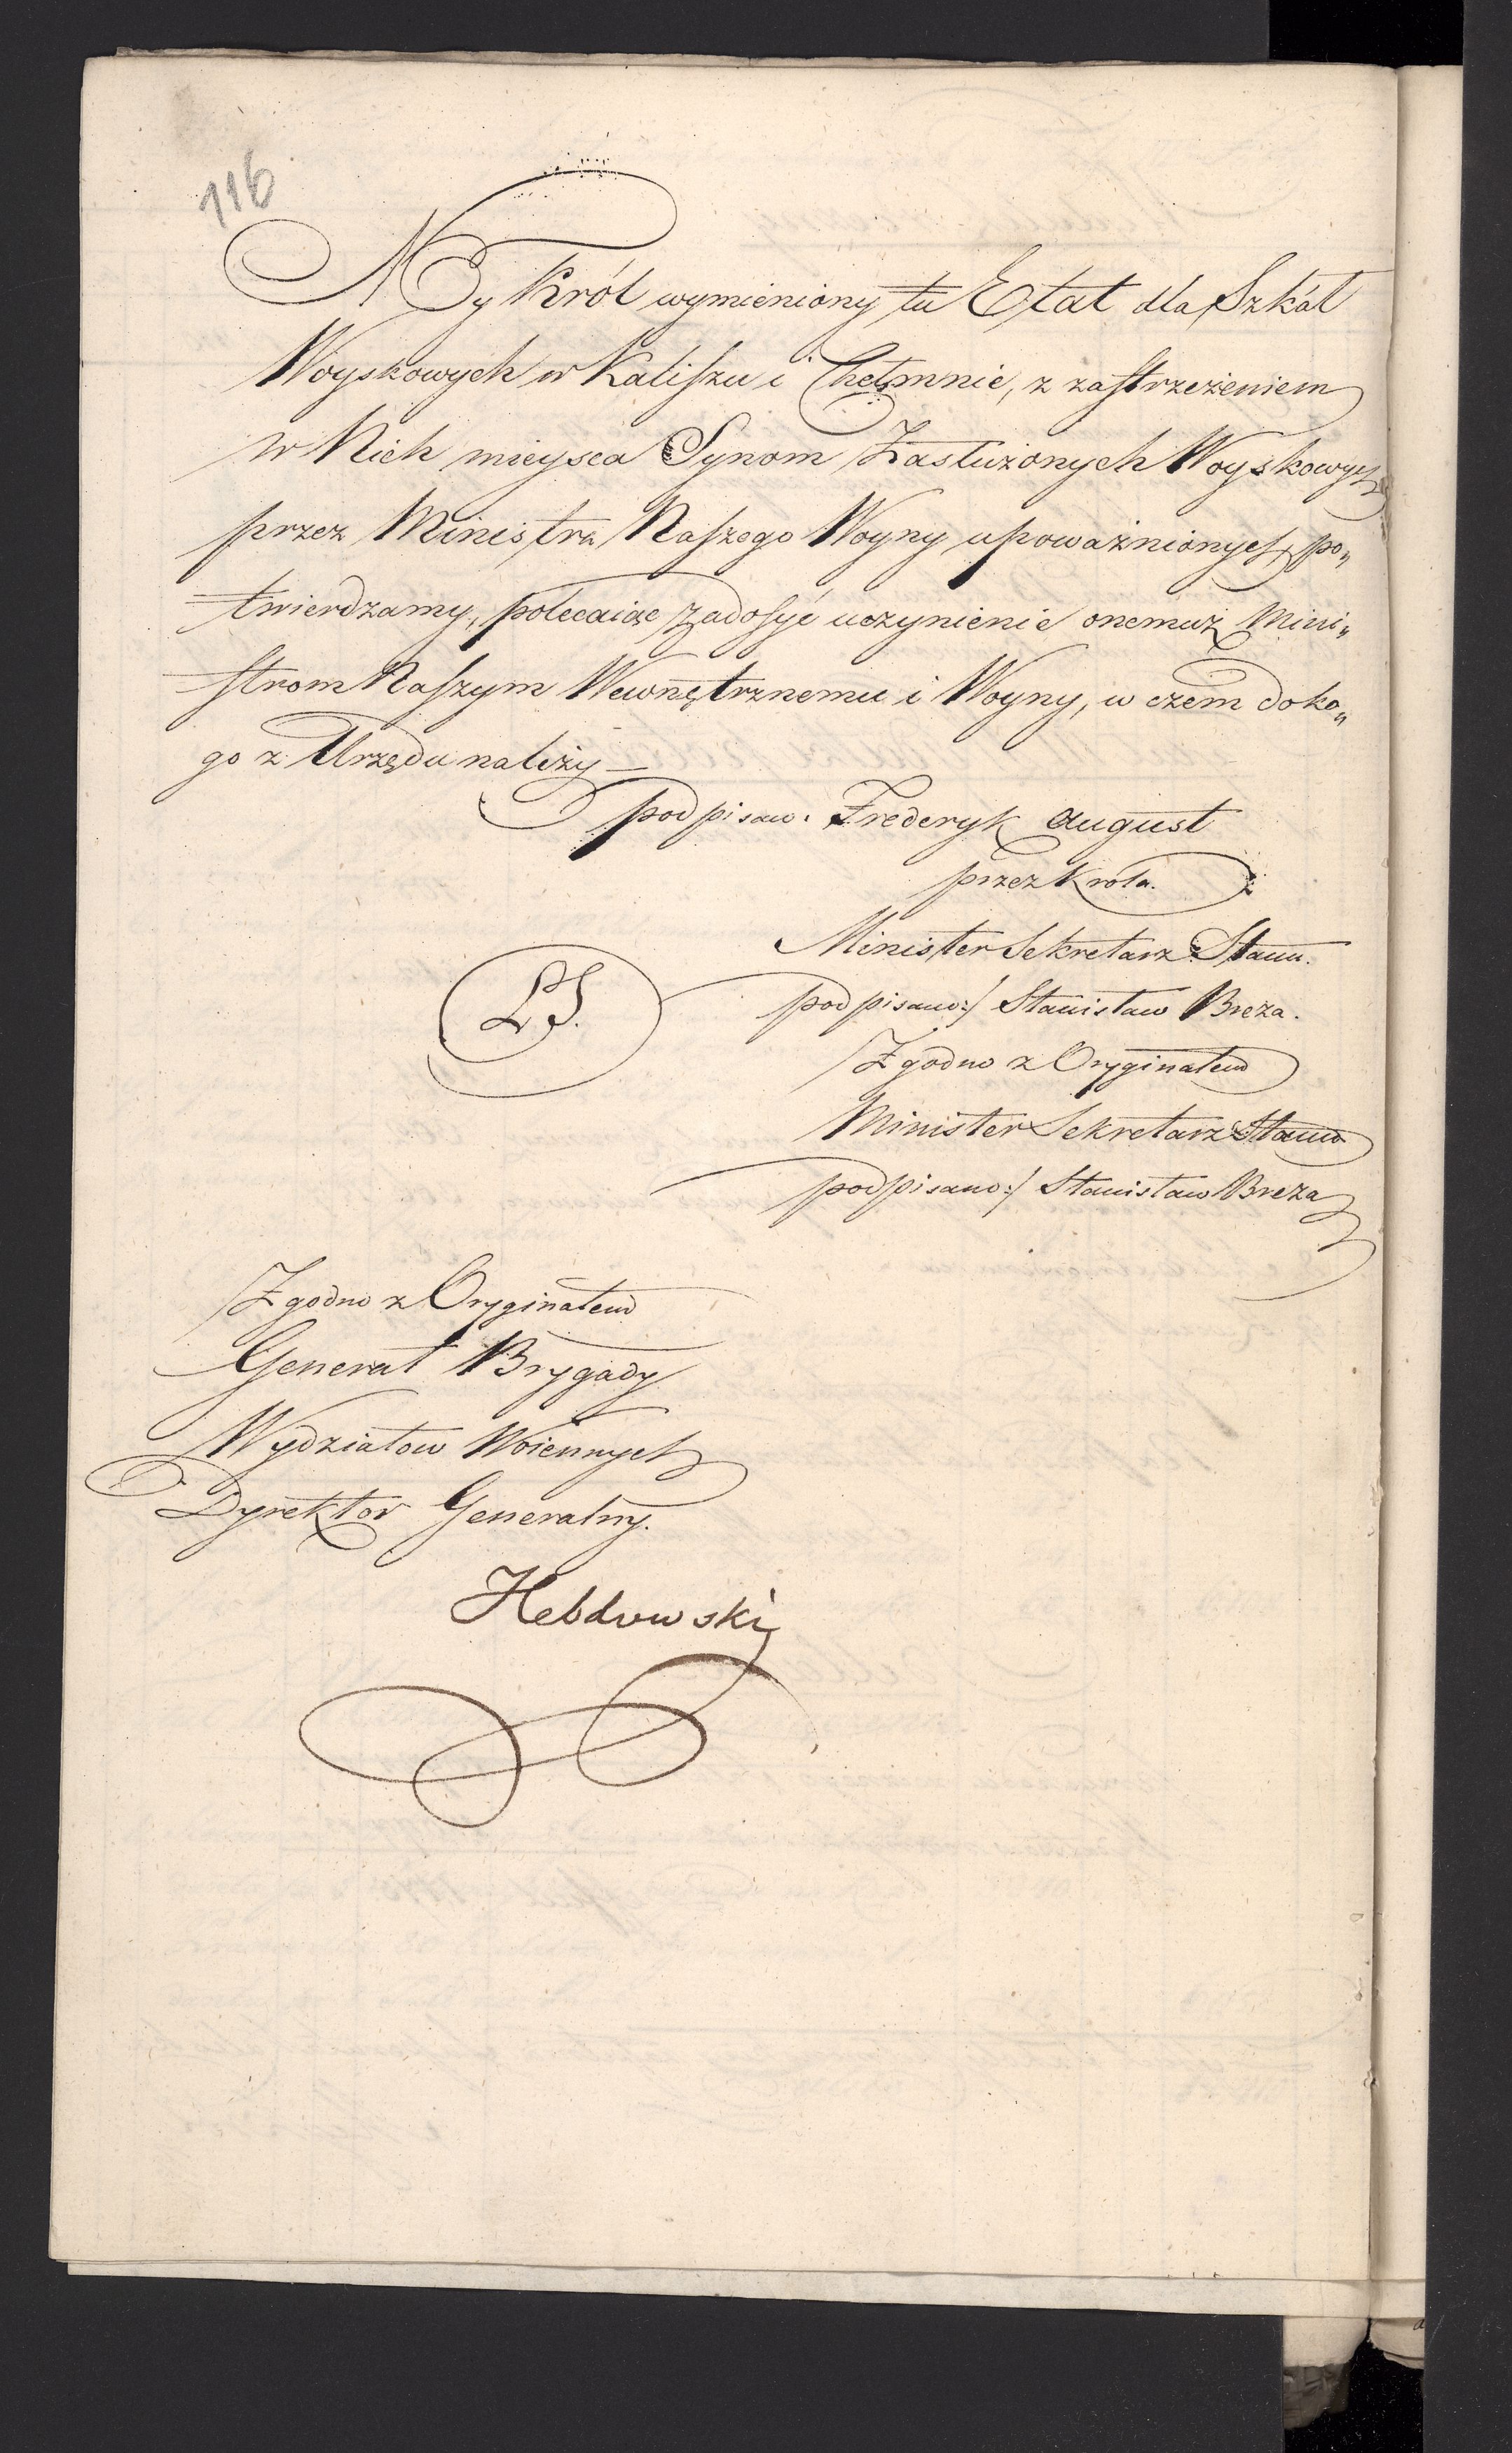 116
My Król wymieniony tu Etat dla Szkół
Woyskowych w Kaliszu i Chełmnie, z zastrzeżeniem
w Nich mieysca Synom Zasłużonych Woyskowych
przez Ministra Naszego Woyny upoważnionych, po„
twierdzamy, polecaiąc zadosyć uczynienie onemuż Mini„
strom Naszym Wewnętrznemu i Woyny, w czem do ko„
go z Urzędu należy —
podpisano. Frederyk August
przez Króla.
Minister Sekretarz Stanu.
LS.
podpisano:/ Stanisław Breza.
Zgodno z Oryginałem
Minister Sekretarz Stanu
podpisano:/ Stanisław Breza
Zgodno z Oryginałem
Generał Brygady
Wydziałow Woiennych
Dyrektor Generalny.
Hebdowski